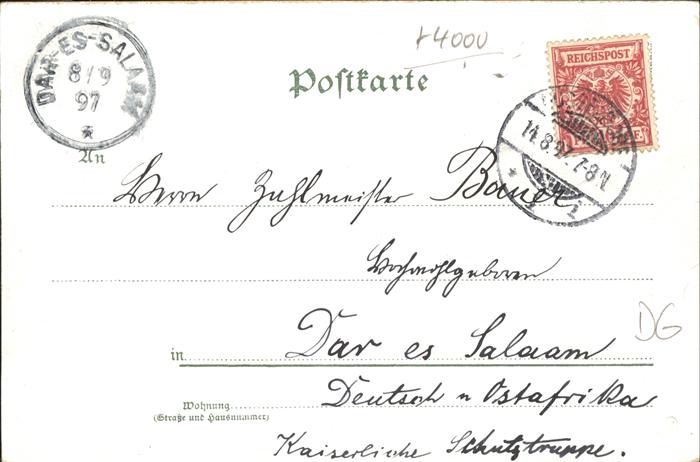 +4000
DAR-ES-SALAAM
8/9
97
*
REICHSPOST
Postkarte
14.8.97. 7-8N
* 1 1
An
Herrn Zahlmeister Bauer
Hochwohlgeboren
DG
in Dar es Salaam
Wohnung Deutsch n Ostafrika
(Straße und Hausnummer)
Kaiserliche Schutztruppe.